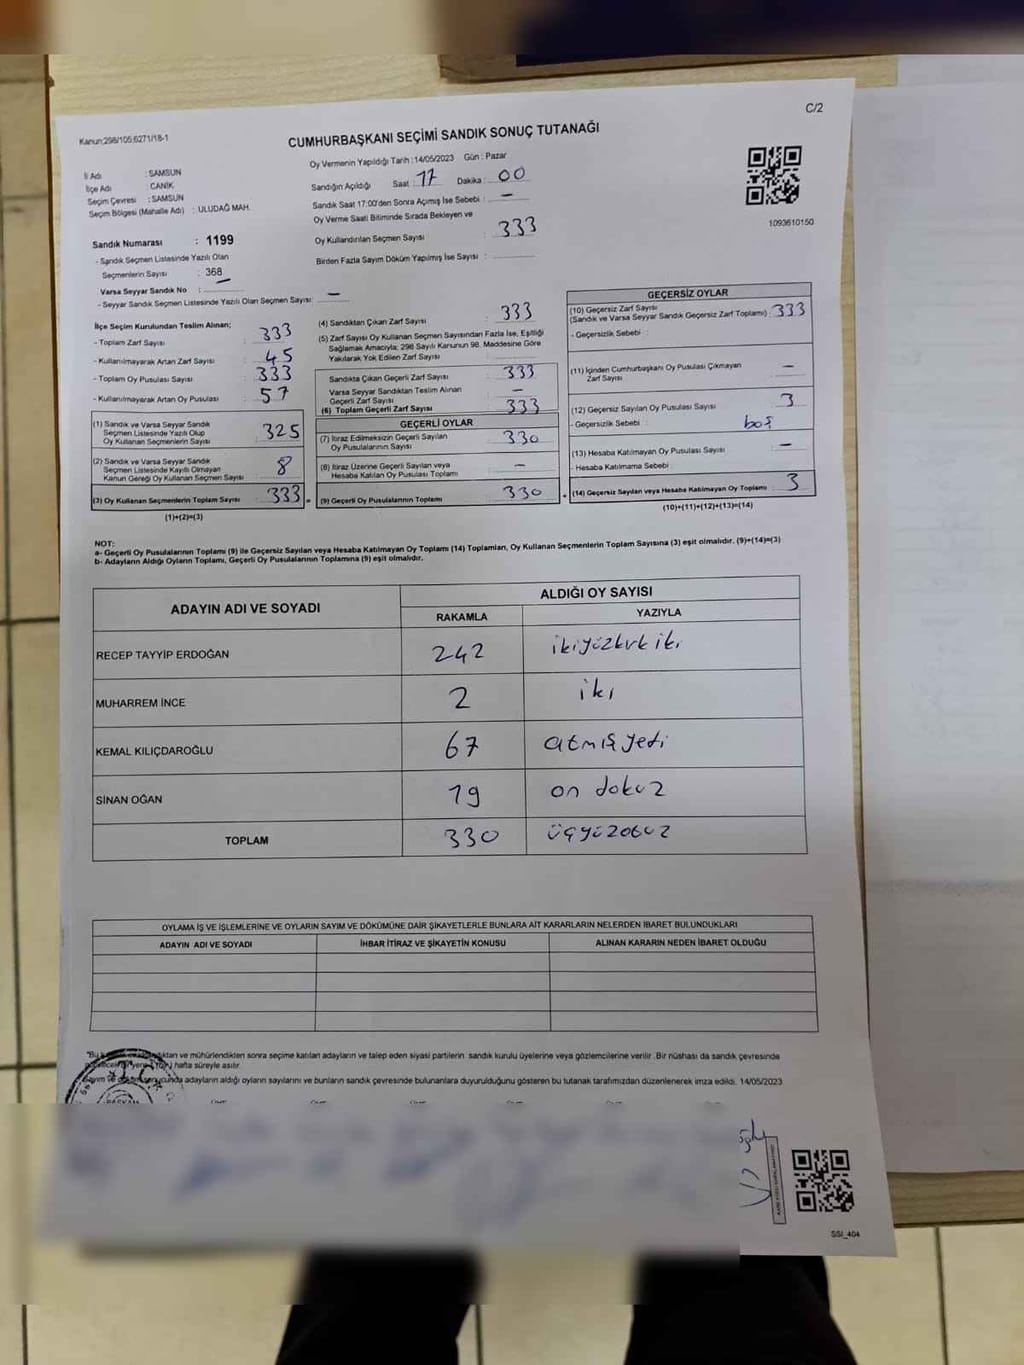 C/2
Kanun:298/105;6271/18-1
CUMHURBAŞKANI SEÇİMİ SANDIK SONUÇ TUTANAĞI
Oy Vermenin Yapıldığı Tarih :14/05/2023 Gün : Pazar
İl Adı : SAMSUN
İlçe Adı : CANİK
Seçim Çevresi : SAMSUN
Seçim Bölgesi (Mahalle Adı) : ULUDAĞ MAH.
Sandığın Açıldığı Saat : 17 Dakika : 00
Sandık Saat 17:00'den Sonra Açılmış İse Sebebi : —
Oy Verme Saati Bitiminde Sırada Bekleyen ve
Oy Kullandırılan Seçmen Sayısı : 333
Birden Fazla Sayım Döküm Yapılmış İse Sayısı :
1093610150
Sandık Numarası : 1199
- Sandık Seçmen Listesinde Yazılı Olan
Seçmenlerin Sayısı : 368
Varsa Seyyar Sandık No : —
- Seyyar Sandık Seçmen Listesinde Yazılı Olan Seçmen Sayısı: —
İlçe Seçim Kurulundan Teslim Alınan;
- Toplam Zarf Sayısı : 333
- Kullanılmayarak Artan Zarf Sayısı : 45
- Toplam Oy Pusulası Sayısı : 333
- Kullanılmayarak Artan Oy Pusulası : 57
(1) Sandık ve Varsa Seyyar Sandık
Seçmen Listesinde Yazılı Olup
Oy Kullanan Seçmenlerin Sayısı : 325
(2) Sandık ve Varsa Seyyar Sandık
Seçmen Listesinde Kayıtlı Olmayan
Kanun Gereği Oy Kullanan Seçmen Sayısı : 8
(3) Oy Kullanan Seçmenlerin Toplam Sayısı : 333 =
(1)+(2)=(3)
(4) Sandıktan Çıkan Zarf Sayısı : 333
(5) Zarf Sayısı Oy Kullanan Seçmen Sayısından Fazla İse, Eşitliği
Sağlamak Amacıyla; 298 Sayılı Kanunun 98. Maddesine Göre
Yakılarak Yok Edilen Zarf Sayısı :
Sandıkta Çıkan Geçerli Zarf Sayısı : 333
Varsa Seyyar Sandıktan Teslim Alınan
Geçerli Zarf Sayısı : —
(6) Toplam Geçerli Zarf Sayısı : 333
GEÇERLİ OYLAR
(7) İtiraz Edilmeksizin Geçerli Sayılan
Oy Pusulalarının Sayısı : 330
(8) İtiraz Üzerine Geçerli Sayılan veya
Hesaba Katılan Oy Pusulası Toplamı : —
(9) Geçerli Oy Pusulalarının Toplamı : 330 +
GEÇERSİZ OYLAR
(10) Geçersiz Zarf Sayısı
(Sandık ve Varsa Seyyar Sandık Geçersiz Zarf Toplamı) : 333
- Geçersizlik Sebebi :
(11) İçinden Cumhurbaşkanı Oy Pusulası Çıkmayan
Zarf Sayısı : —
(12) Geçersiz Sayılan Oy Pusulası Sayısı : 3
- Geçersizlik Sebebi : boş
(13) Hesaba Katılmayan Oy Pusulası Sayısı : —
- Hesaba Katılmama Sebebi :
(14) Geçersiz Sayılan veya Hesaba Katılmayan Oy Toplamı : 3
(10)+(11)+(12)+(13)=(14)
NOT:
a- Geçerli Oy Pusulalarının Toplamı (9) ile Geçersiz Sayılan veya Hesaba Katılmayan Oy Toplamı (14) Toplamları, Oy Kullanan Seçmenlerin Toplam Sayısına (3) eşit olmalıdır. (9)+(14)=(3)
b- Adayların Aldığı Oyların Toplamı, Geçerli Oy Pusulalarının Toplamına (9) eşit olmalıdır.
ADAYIN ADI VE SOYADI
ALDIĞI OY SAYISI
RAKAMLA YAZIYLA
RECEP TAYYİP ERDOĞAN 242 ikiyüzkırk iki
MUHARREM İNCE 2 iki
KEMAL KILIÇDAROĞLU 67 atmış yedi
SİNAN OĞAN 19 on dokuz
TOPLAM 330 üçyüzotuz
OYLAMA İŞ VE İŞLEMLERİNE VE OYLARIN SAYIM VE DÖKÜMÜNE DAİR ŞİKAYETLERLE BUNLARA AİT KARARLARIN NELERDEN İBARET BULUNDUKLARI
ADAYIN ADI VE SOYADI İHBAR İTİRAZ VE ŞİKAYETİN KONUSU ALINAN KARARIN NEDEN İBARET OLDUĞU
ve mühürlendikten sonra seçime katılan adayların ve talep eden siyasi partilerin sandık kurulu üyelerine veya gözlemcilerine verilir. Bir nüshası da sandık çevresinde
hafta süreyle asılır.
adayların aldığı oyların sayılarını ve bunların sandık çevresinde bulunanlara duyurulduğunu gösteren bu tutanak tarafımızdan düzenlenerek imza edildi. 14/05/2023
BAŞKAN
SSI_404